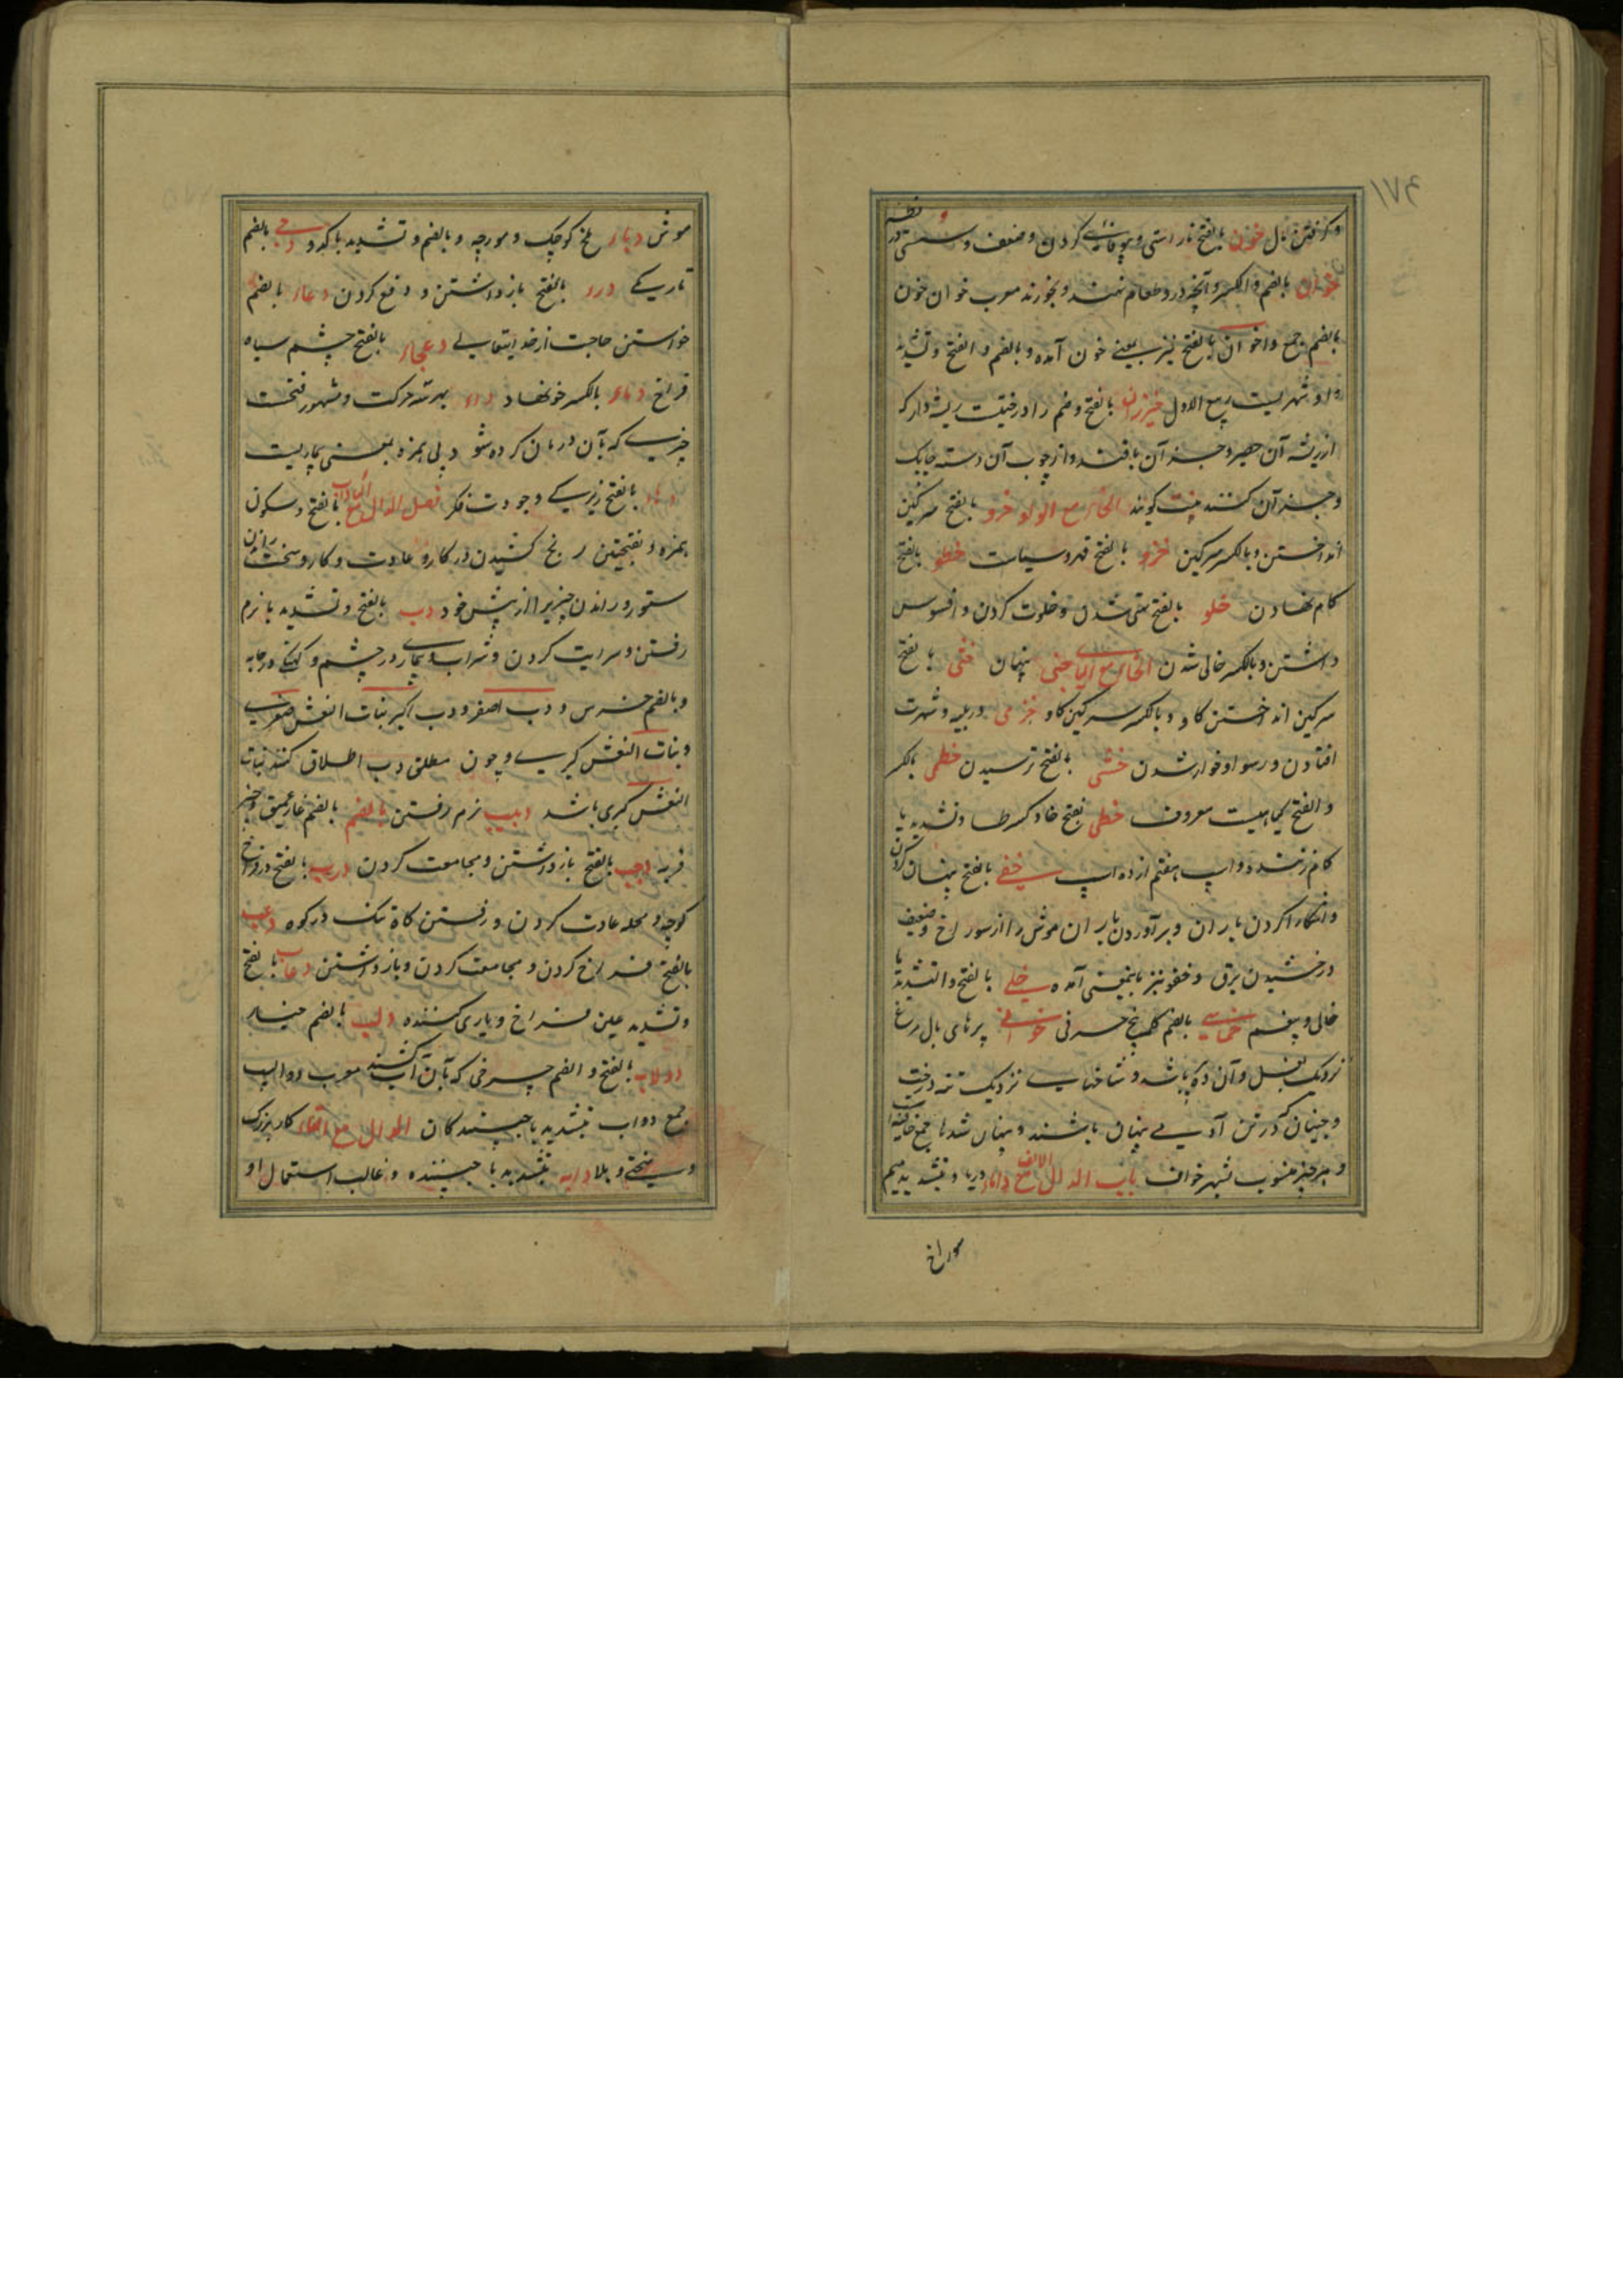 و گرفتن بال خون بالفتح ناراستی و بیوفائی کردن و ضعف و سستی در نظر
خوان بالضم و الکسر و آنچه درو طعام نهند و بخورند معرب خوان خون
بالضم جمع و اخوان بالفتح نیز بمعنی خون آمده و بالضم و الفتح و تشدید
واو شهریست ربیع الاول خیزران بالفتح و ضم را درختیست ریشه دار که
از ریشه آن حصیر و جز آن بافند و از چوب آن دسته چابک
و جز آن کنند بیت کویند الخاء مع الواو خرو بالفتح سرکین
انداختن و بالکسر سرکین خزو بالفتح قهر و سیاست خطو بالفتح
کام نهادن خلو بالفتح تهی شدن و خلوت کردن و افسوس
داشتن و بالکسر خالی شدن الخاء مع الیاء خبی پنهان خثی بالفتح
سرکین انداختن کاو و بالکسر سرکین کاو خزی در بلیه و شهرت
افتادن و رسوا و خوار شدن خشی بالفتح ترسیدن خطمی بالکسر
و الفتح کیاهیست معروف خطی بفتح خا و کسر طا و تشدید یا
کام زننده و اسپ هفتم از ده اسپ خفی بالفتح پنهان کردن
و آشکارا کردن باران و برآوردن باران موش را از سوراخ و ضعیف
درخشیدن برق و خفو نیز باینمعنی آمده خلی بالفتح و التشدید یا
خالی و بیغم خماسی بالضم کلمه پنج حرفی خوافی پرهای بال مرغ
نزدیک بغل و آن ده پر باشد و شاخهای نزدیک تنه درخت
و جنیان که در تن آدمی پنهان باشند و پنهان شدها جمع خافیه
و هر چیز منسوب بشهر خواف باب الدال مع الالف داماء دریا و بتشدید میم
سوراخ
موش دباء ملخ کوچک و مورچه و بالضم و تشدید با کدو دجی بالضم
تاریکی درء بالفتح بازداشتن و دفع کردن دعاء بالضم
خواستن حاجت از خدایتعالی دعجاء بالفتح چشم سیاه
فراخ دماء بالکسر خونها دواء بهر سه حرکت و مشهور فتحست
چیزی که بآن درمان کرده شود و بی همزه بمعنی بیماریست
دهاء بالفتح زیرکی و جودت فکر فصل الدال مع الباء داب بالفتح و سکون
همزه و بفتحتین رنج کشیدن در کار و عادت و کار و سخت راندن
ستور و راندن چیزیرا از پیش خود دب بالفتح و تشدید با نرم
رفتن و سرایت کردن و شراب و بیماری در جسم و کهنکی در جامه
و بالضم خرس و دب اصغر و دب اکبر بنات النعش صغری
و بنات النعش کبری و چون مطلق دب اطلاق کنند بنات
النعش کبری باشد دبیب نرم رفتن بالضم بالضم غار عمیق و چیز
فربه دجب بالفتح بازداشتن و مجامعت کردن درب بالفتح دروازه فراخ
کوچه و محله عادت کردن و رفتن کاه تنک در کوه دعب
بالفتح فراخ کردن و مجامعت کردن و بازداشتن دعاب بالفتح
و تشدید عین فراخ و یاری کننده دلب بالضم چنار
دولاب بالفتح و الضم چرخی که بآن آب کشند معرب دوالیب
جمع دواب بتشدید با جنبندکان الدال مع التاء کار بزرک
و سختی و بلا دابه بتشدید با جنبنده و غالب استعمال او